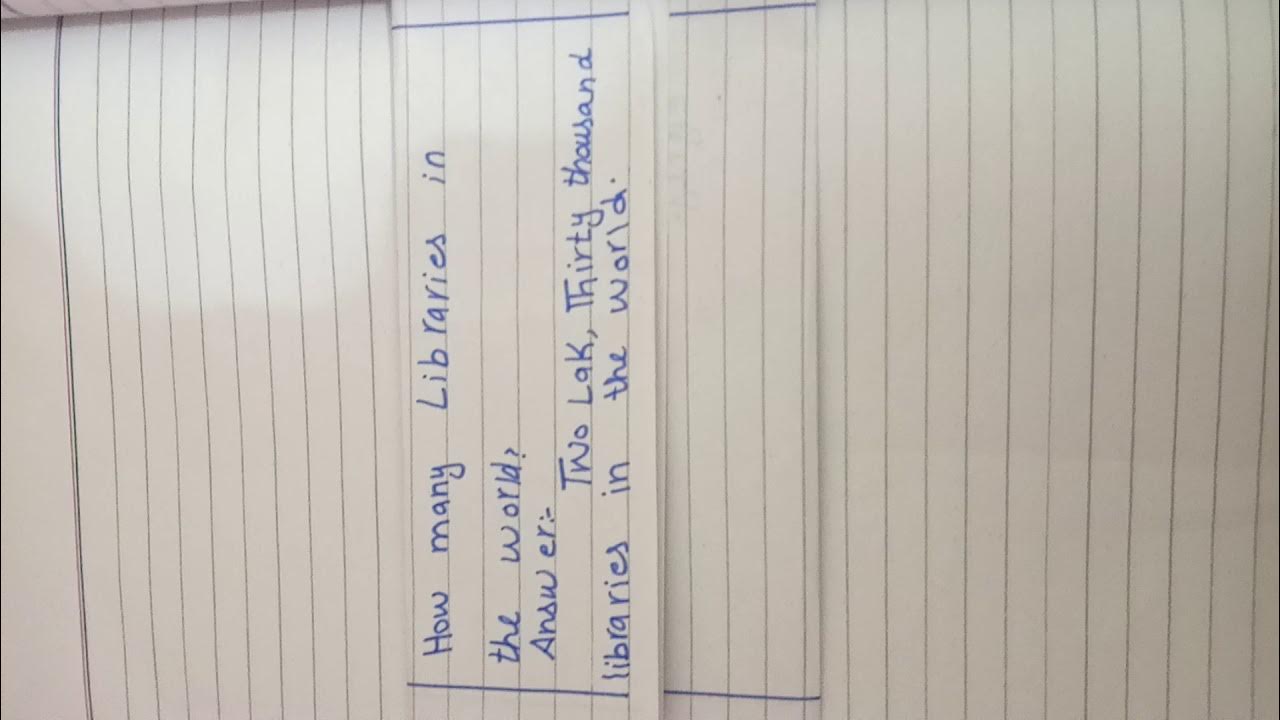 How many Libraries in
the world?
Answer:-
Two Lak, Thirty thousand
libraries in the world.